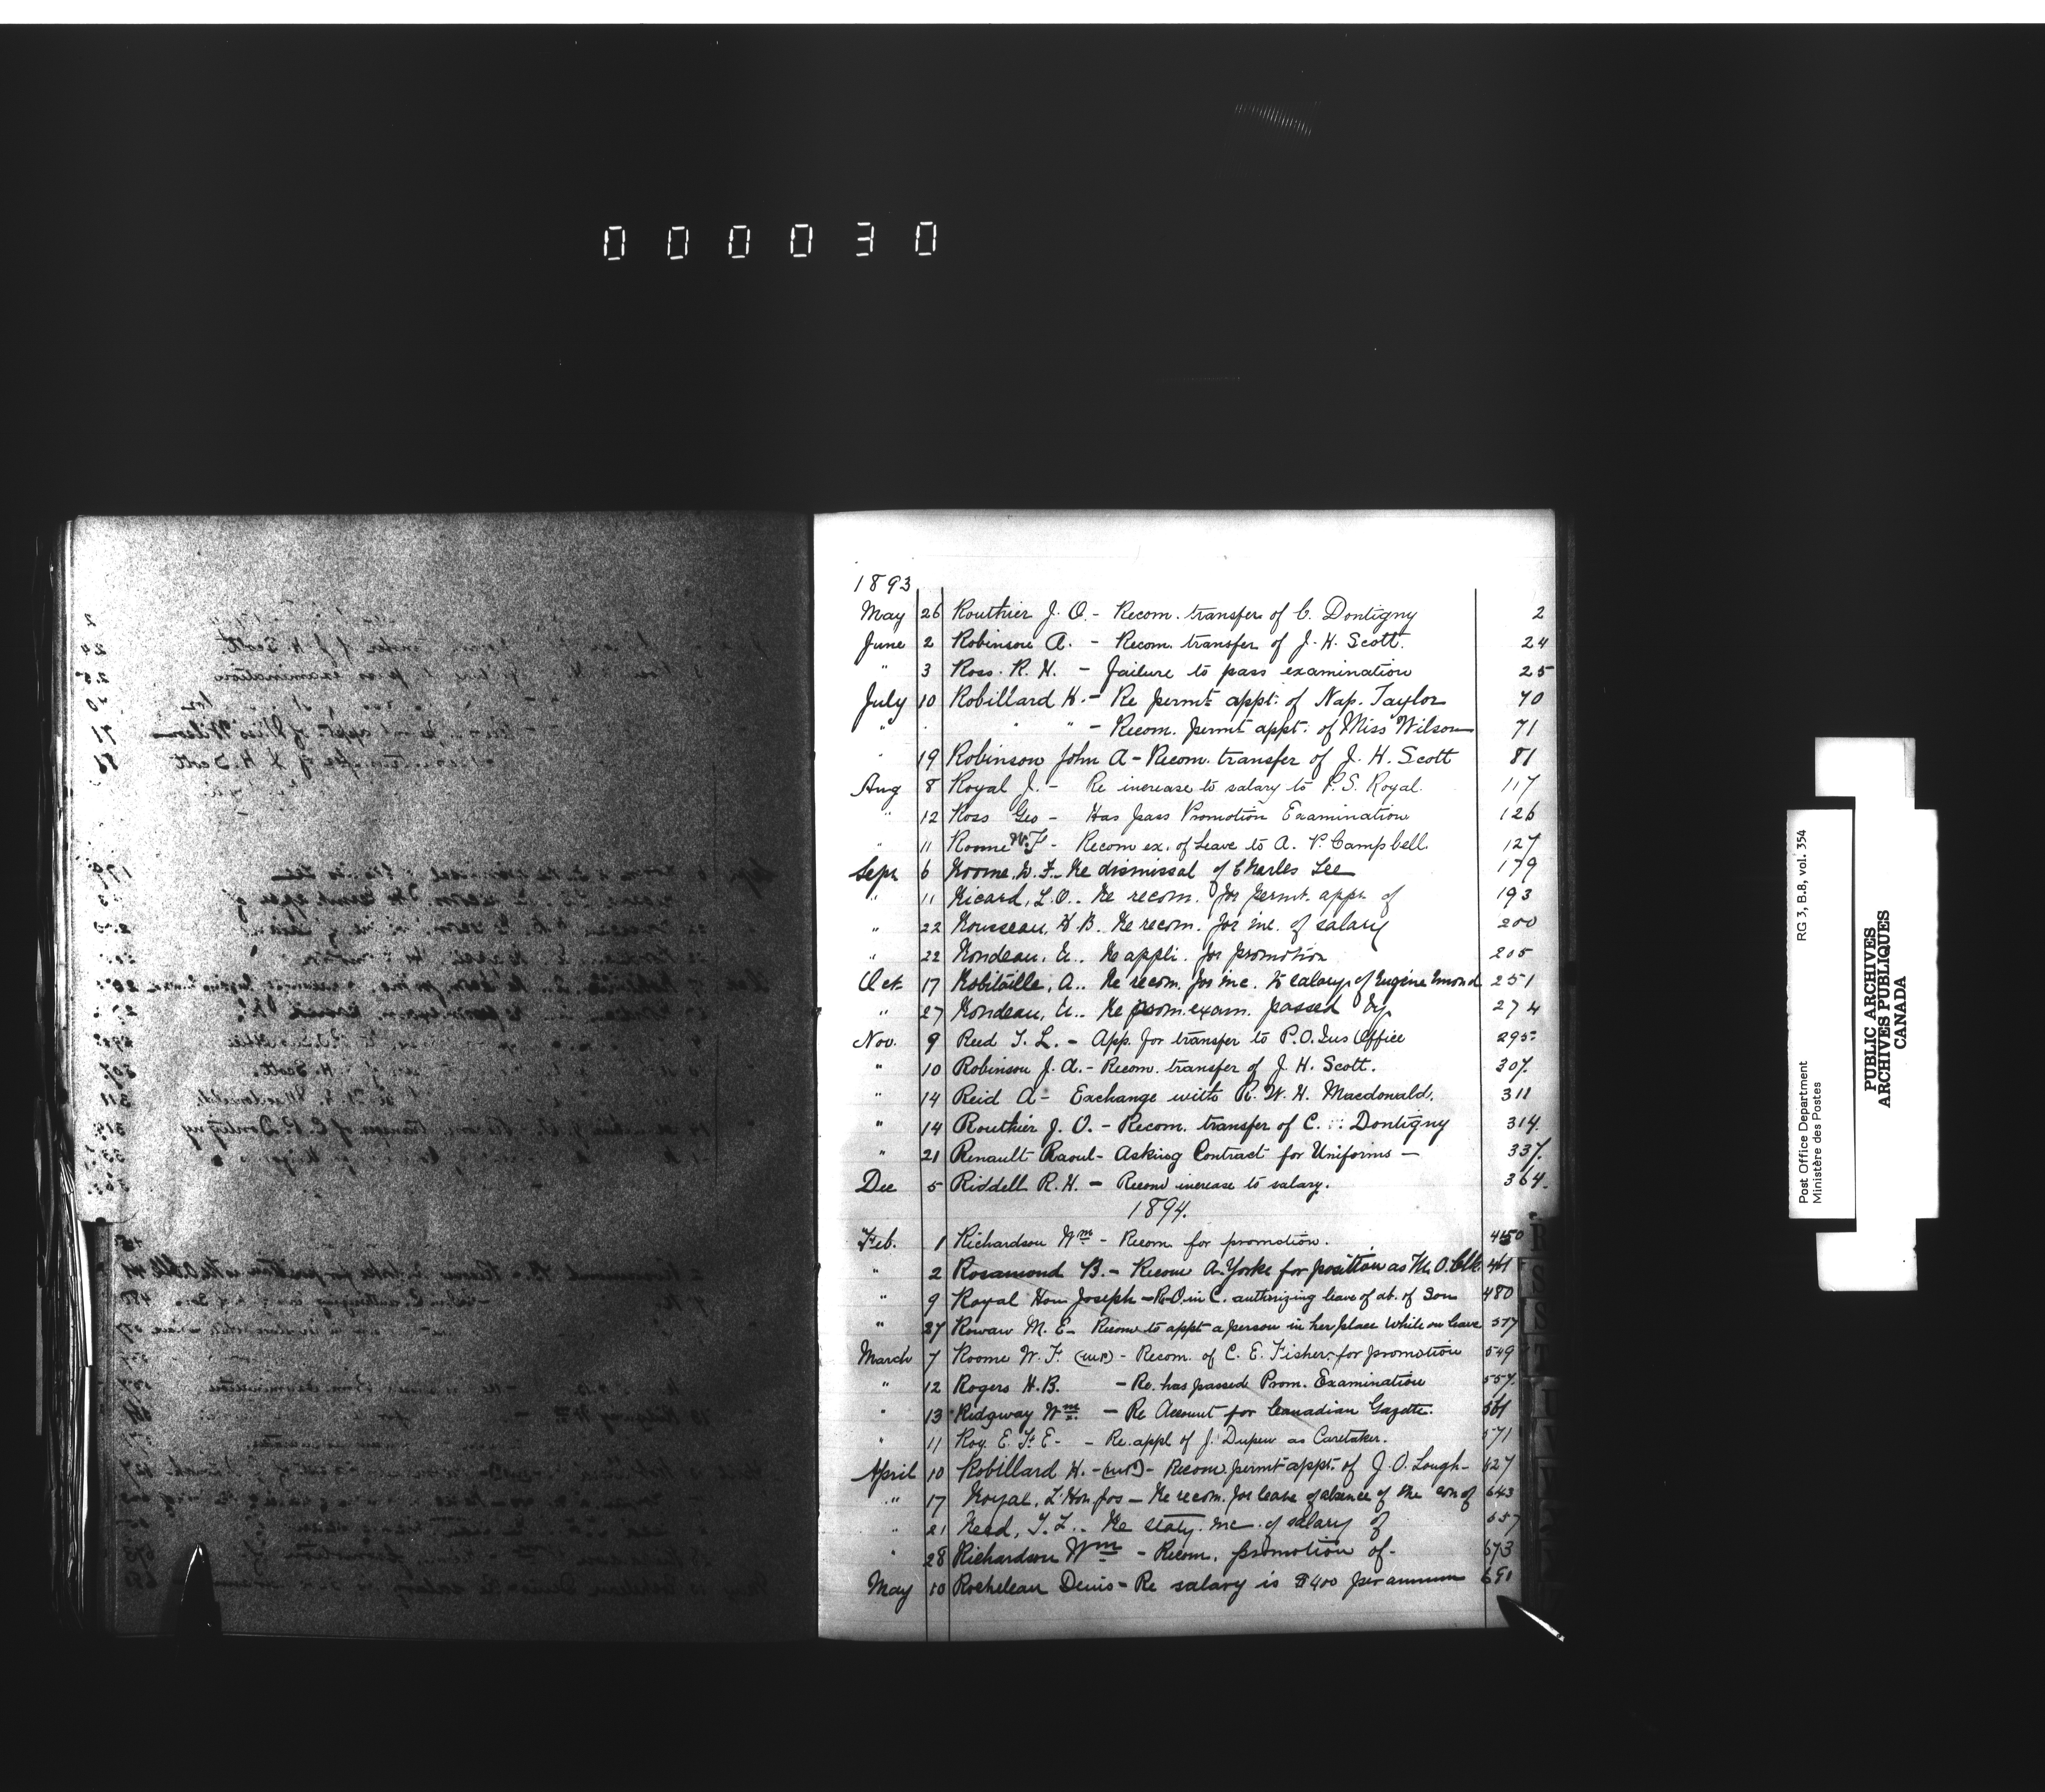 000030
1893
May 26 Routhier J. O. - Recom. transfer of C. Dontigny 2
June 2 Robinson A. - Recom. transfer of J. H. Scott. 24
" 3 Ross. R. H. - Failure to pass examination 25
July 10 Robillard H. - Re permt appt. of Nap. Taylor 70
" " " - Recom. permt appt. of Miss Wilson 71
" 19 Robinson John A - Recom. transfer of J. H. Scott 81
Aug 8 Royal J. - Re increase to salary to P. S. Royal. 117
" 12 Ross Geo - Has pass Promotion Examination 126
" 11 Roome W. F - Recom ex. of Leave to A. P. Campbell. 127
Sept 6 Roome. W. F. Re dismissal of Charles Lee 179
" 11 Ricard, L.O.. Re recom. for permt. appt. of 193
" 22 Rousseau, H B. Re recom. for inc. of salary 200
" 22 Rondeau, A.. Re appli. for promotion 205
Oct. 17 Robitaille, A.. Re recom. for inc. to salary of Eugène Emond 251
" 27 Rondeau, A.. Re prom. exam. passed by 274
Nov. 9 Reed T. L. - App. for transfer to P.O. Ins Office 295
" 10 Robinson J. A. - Recom. transfer of J. H. Scott. 307.
" 14 Reid A - Exchange with R. W. H. Macdonald. 311
" 14 Routhier J. O. - Recom. transfer of C. Dontigny 314.
" 21 Renault Raoul - Asking Contract for Uniforms — 337.
Dec 5 Riddell R. H. - Recom increase to salary. 364.
1894.
Feb. 1 Richardson Wm - Recom. for promotion. 450
" 2 Rosamond B. - Recom A. Yorke for position as M.O. Clk. 461
" 9 Royal Hon Joseph - Re O. in C. authorizing leave of ab. of Son 480
" 27 Rowan M. E - Recom to appt a person in her place while on leave 517
March 7 Roome W. F. (M.P.) - Recom. of C. E. Fisher for promotion 549
" 12 Rogers H. B. - Re. has passed Prom. Examination 557.
" 13 Ridgway Wm - Re Account for Canadian Gazette. 561
" 11 Roy. E. F. E - - Re. appl of J. Dupew as Caretaker. 571
April 10 Robillard H. - (M.P.) - Recom permt appt. of J. O. Lough- 627
" 17 Royal, L' Hon. Jos - Re recom. for leave of absence of the son of 643
" 21 Reed, T. L.. Re staty. inc. of salary of 657
" 28 Richardson Wm - Recom. promotion of - 673
May 10 Rocheleau Denis - Re salary is $400 per annum 691
R
S
RG 3, B.8, vol. 354
Post Office Department
Ministère des Postes
PUBLIC ARCHIVES
ARCHIVES PUBLIQUES
CANADA